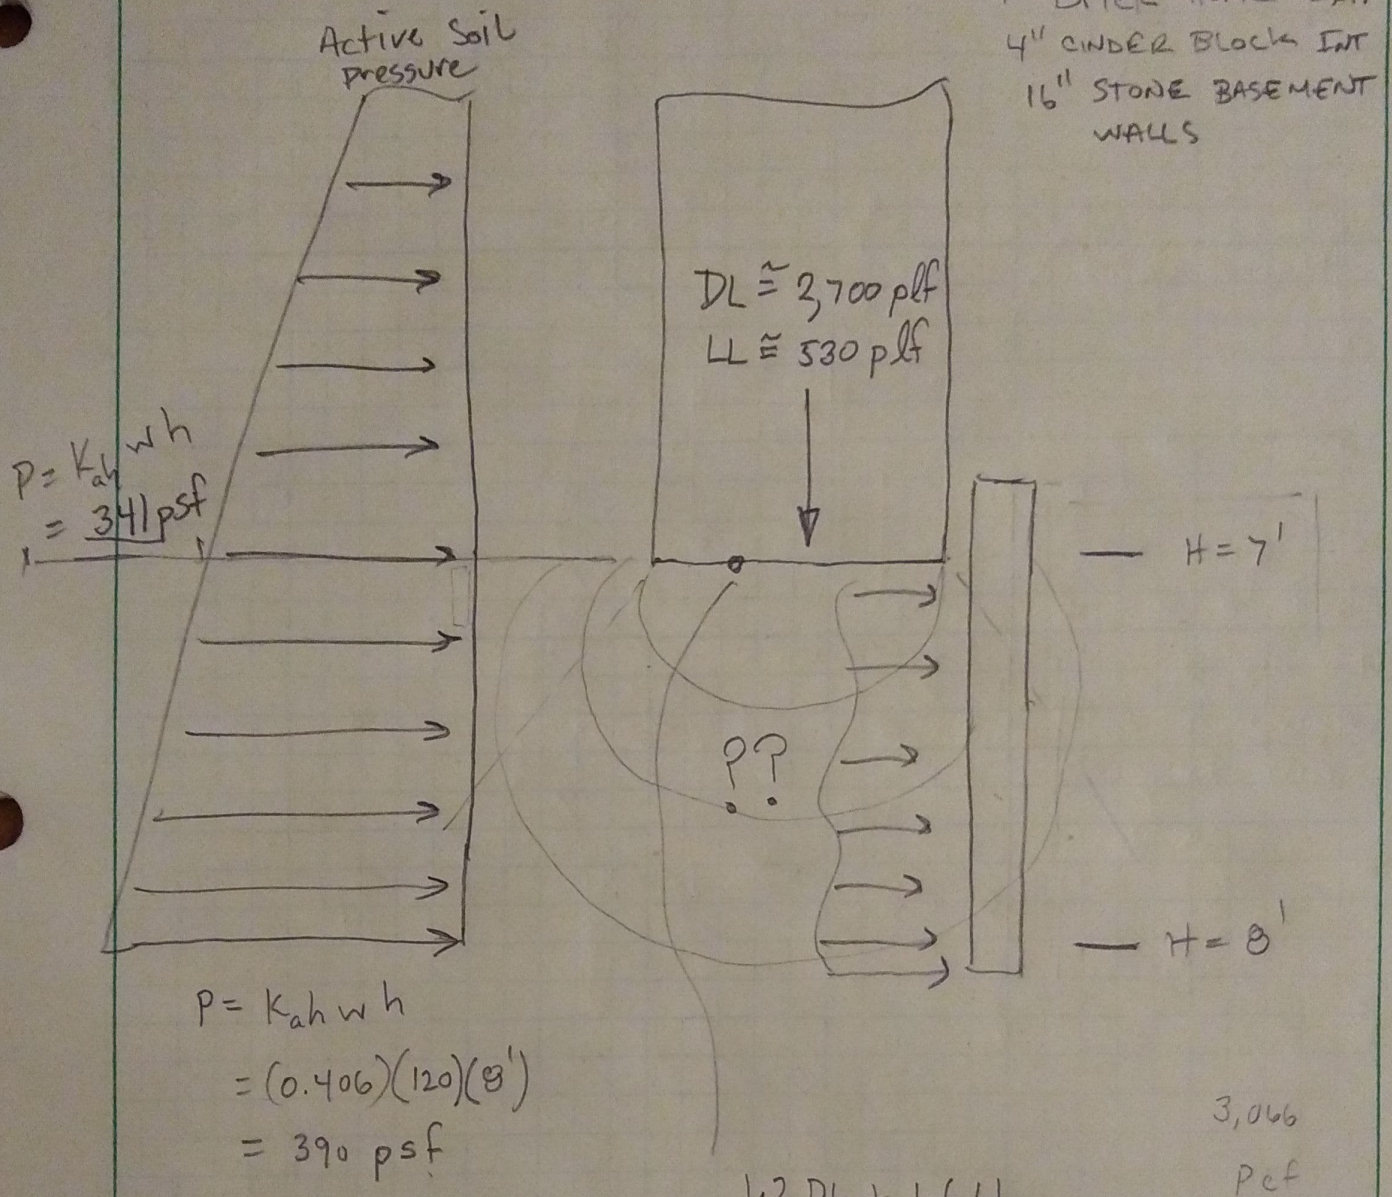 Active Soil
pressure
4" CINDER BLOCK INT
16" STONE BASEMENT
WALLS
DL ≅ 2,700 plf
LL ≅ 530 plf
P = Kah wh
= 341 psf
H = 7'
??
H = 8'
P = Kah wh
= (0.406)(120)(8')
= 390 psf
3,066
Pcf